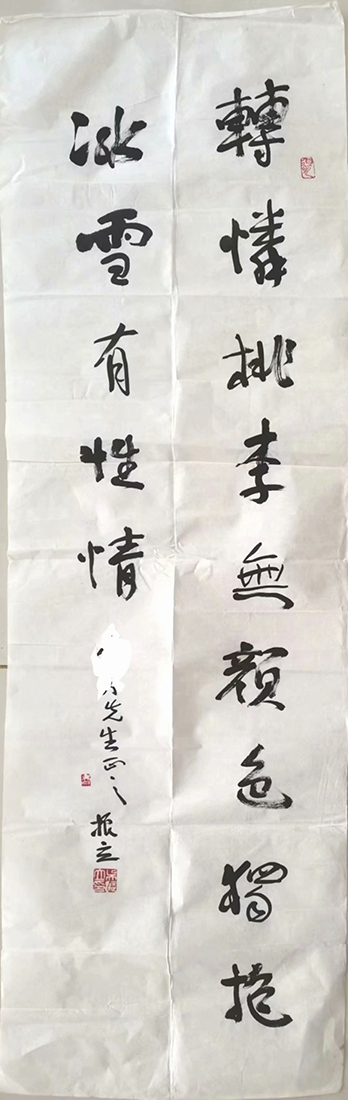 轉憐桃李無顏色獨抱
冰雪有性情
先生正之
振立